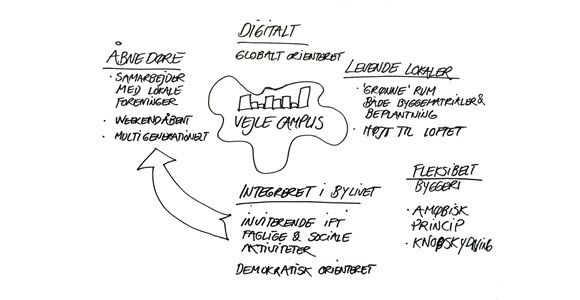 DIGITALT
GLOBALT ORIENTERET
ÅBNE DØRE
• SAMARBEJDER
MED LOKALE
FORENINGER
• WEEKENDÅBENT
• MULTIGENERATIONELT
LEVENDE LOKALER
• 'GRØNNE' RUM
BÅDE BYGGEMATRIALER &
BEPLANTNING
• HØJT TIL LOFTET
VEJLE CAMPUS
INTEGRERET I BYLIVET
INVITERENDE IFT
FAGLIGE & SOCIALE
AKTIVITETER
DEMOKRATISK ORIENTERET
FLEKSIBELT
BYGGERI
• AMØBISK
PRINCIP
• KNOBSKYDNING